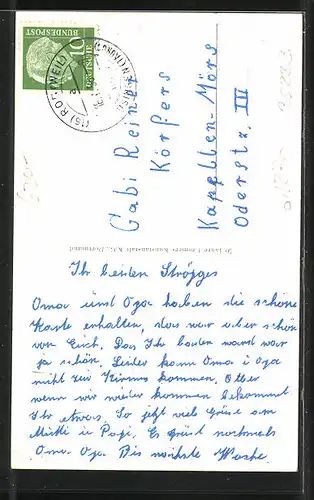 DEUTSCHE
BUNDESPOST
10
Gabi Reiner
Körfers
Kapellen-Mörs
Oderstr. III
Ihr beiden Ströpges
Oma und Opa haben die schöne
Karte erhalten, das war aber schön
von Euch. Das Ihr baden wart war
ja schön. Leider kann Oma u Opa
nicht zur Kirmes kommen. Aber
wenn wir wieder kommen bekommt
Ihr etwas. So jetzt viel Grüße an
Mutti u Papi. Es grüßt nochmals
Oma Opa. Bis nächste Woche.